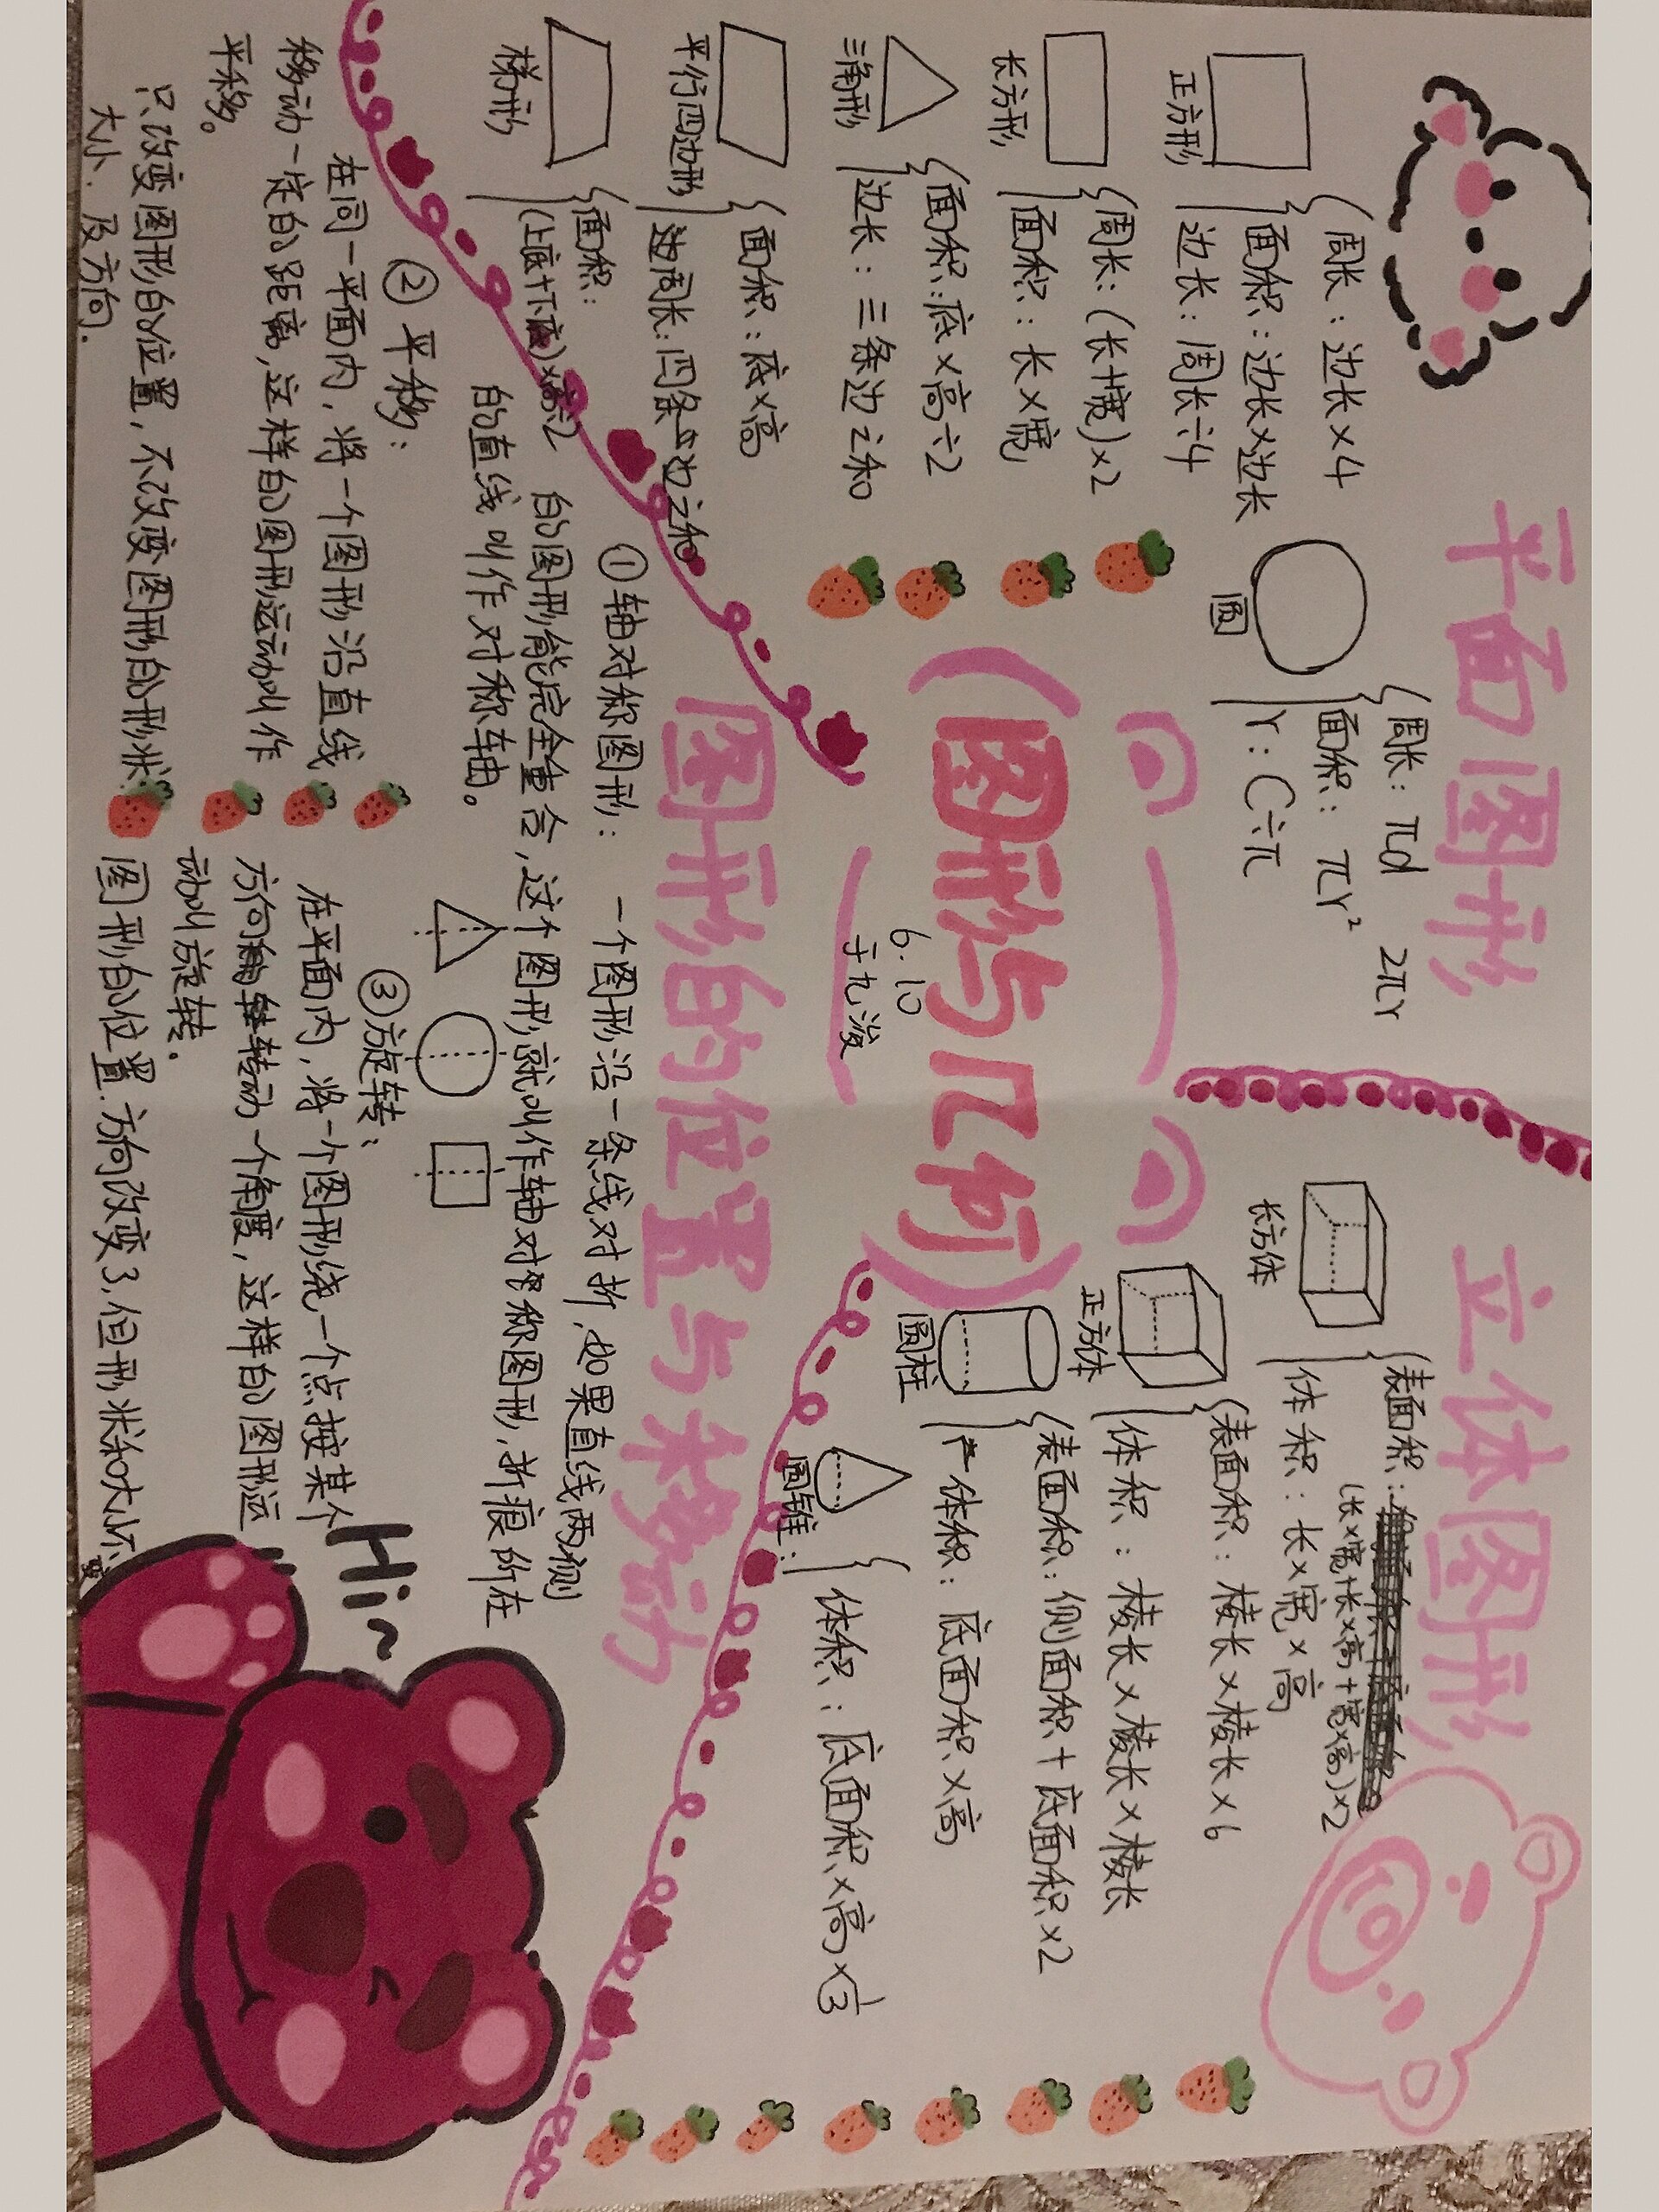 平面图形
正方形
周长：边长×4
面积：边长×边长
边长：周长÷4
长方形
周长：(长+宽)×2
面积：长×宽
三角形
面积：底×高÷2
边长：三条边之和
平行四边形
面积：底×高
周长：四条边之和
梯形
面积：
(上底+下底)×高÷2
圆
周长：πd 2πr
面积：πr²
r：C÷π
立体图形
长方体
表面积：
(长×宽+长×高+宽×高)×2
体积：长×宽×高
正方体
表面积：棱长×棱长×6
体积：棱长×棱长×棱长
圆柱
表面积：侧面积+底面积×2
体积：底面积×高
圆锥：
体积：底面积×高×1/3
(图形与几何)
6.10
图形的位置与移动
①轴对称图形：一个图形沿一条线对折，如果直线两侧
的图形能完全重合，这个图形就叫作轴对称图形，折痕所在
的直线叫作对称轴。
②平移：
在同一平面内，将一个图形沿直线
移动一定的距离，这样的图形运动叫作
平移。
只改变图形的位置，不改变图形的形状、
大小、及方向.
③旋转：
在平面内，将一个图形绕一个点按某个
方向转动一个角度，这样的图形运
动叫旋转.
图形的位置.方向改变了,但形状和大小不变
Hi~